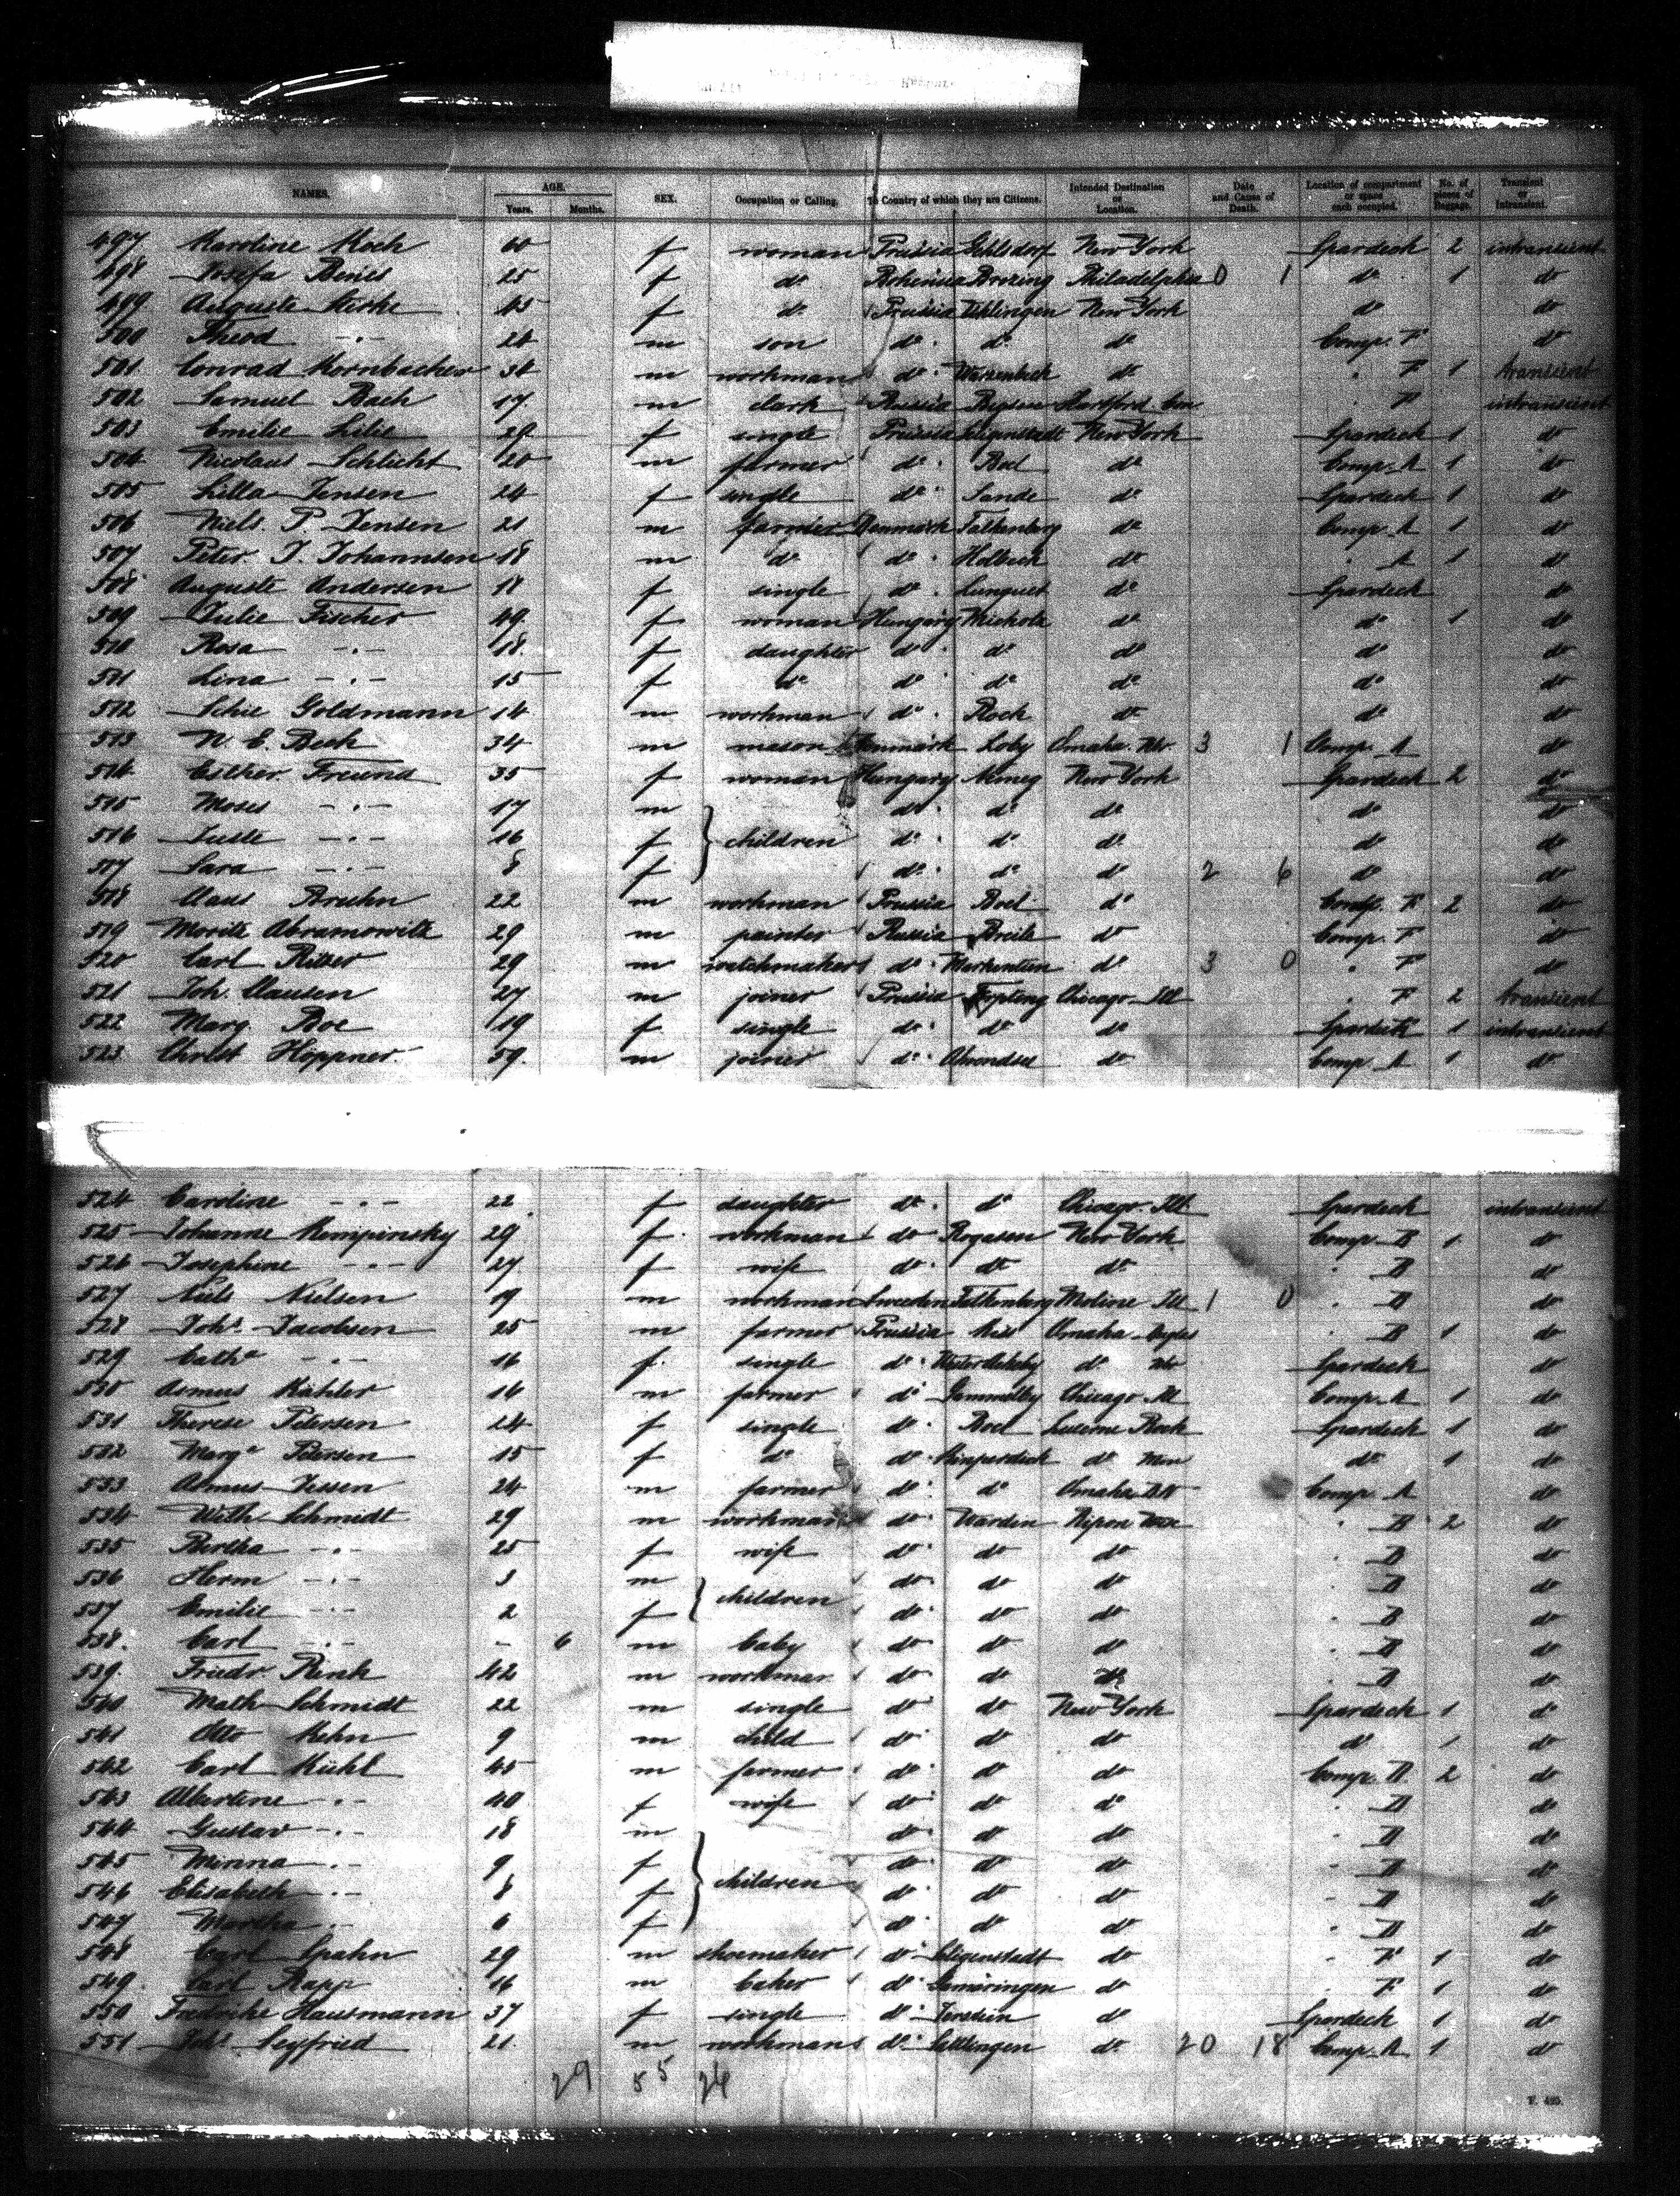 NAMES. AGE. Years. Months. SEX. Occupation or Calling. Country of which they are Citizens. Intended Destination or Location. Date and Cause of Death. Location of compartment or space each occupied. No. of Pieces of Baggage. Transient or Intransient.
497 Karoline Koch f woman Prussia Gehlsdorf New York Spardeck 2 intransient
498 Josefa Benes 25 f do Bohemia Philadelphia 0 1 do 1 do
499 Auguste 45 f do Prussia New York do do
500 Theod -"- 24 m son do do do Comp. F do
501 Conrad Kornbacher 34 m workman do do " F 1 transient
502 Samuel Bach 17 m clark Russia Hartford Con. " F intransient
503 Emilie Lilie 29 f single Prussia New York Spardeck 1 do
504 Nicolaus Schlicht 20 m farmer do Boel do Comp. A 1 do
505 Lilla Jensen 24 f single do Sande do Spardeck 1 do
506 Niels P Jensen 21 m farmer Denmark Falkenberg do Comp. A 1 do
507 Peter J. Johannsen 18 m do do Holbeck do " A 1 do
508 Auguste Andersen 18 f single do do Spardeck do
509 Julie Fischer 49 f woman Hungary do do 1 do
510 Rosa -"- 18 f daughter do do do do do
511 Lina -"- 15 f do do do do do do
512 Goldmann 14 m workman do do do do
513 N. E. Beck 34 m mason Denmark Omaha. Nb. 3 1 Comp. A do
514 Esther Freund 35 f woman Hungary New York Spardeck 2 do
515 Moses -"- 17 m do do do do do
516 -"- 16 f children do do do do do
517 Sara -"- 8 f do do do 2 6 do do
518 Claus Bruhn 22 m workman Prussia Boel do Comp. F 2 do
519 Moritz Abramowitz 29 m painter Russia do Comp. F do
520 Carl Ritter 29 m watchmaker do do 3 0 " F do
521 Joh. Clausen 27 m joiner Prussia Chicago Ill " F 2 transient
522 Marg. Boe 19 f single do do do Spardeck 1 intransient
523 Christ Hoppner 59 m joiner do Ahrendsee do Comp. A 1 do
524 Caroline -"- 22 f daughter do do Chicago Ill. Spardeck intransient
525 Johanne Kempinsky 29 f workman do Rogasen New York Comp. B 1 do
526 Josephine -"- 27 f wife do do do " B do
527 Nils Nielsen 19 m workman Sweeden Falkenberg Moline Ill 1 0 " B do
528 Johs. Jacobsen 25 m farmer Prussia Omaha " B 1 do
529 Cathe -"- 16 f single do do Spardeck do
530 Asmus Kähler 16 m farmer do Gammelby Chicago Ill Comp. A 1 do
531 Therese Petersen 24 f single do Boel Spardeck 1 do
532 Marga Petersen 15 f do do do do 1 do
533 Asmus Jessen 24 m farmer do do Omaha Comp. A do
534 Wilh Schmidt 29 m workman do Warden Ripon " B 2 do
535 Bertha -"- 25 f wife do do do " B do
536 Herm -"- 3 m do do do " B do
537 Emilie -"- 2 f children do do do " B do
538. Carl -"- - 6 m baby do do do " B do
539. Friedr. Rink 42 m workman do do do " B do
540 Math Schmidt 22 m single do do New York Spardeck 1 do
541 Otto Kehn 9 m child do do do do 1 do
542 Carl Kühl 45 m farmer do do do Comp. B 2 do
543 Albertine -"- 40 f wife do do do " B do
544 Gustav -"- 18 m do do do " B do
545 Minna -"- 9 f do do do " B do
546 Elisabeth -"- 8 f children do do do " B do
547 Martha -"- 6 f do do do " B do
548 Carl Spahn 29 m shoemaker do do " F 1 do
549. Carl Rapp 16 m baker do do " F 1 do
550 Fredrike Hausmann 37 f single do do Spardeck 1 do
551 Segfried 21 m workman do do 20 18 Comp. A 1 do
29 55 24